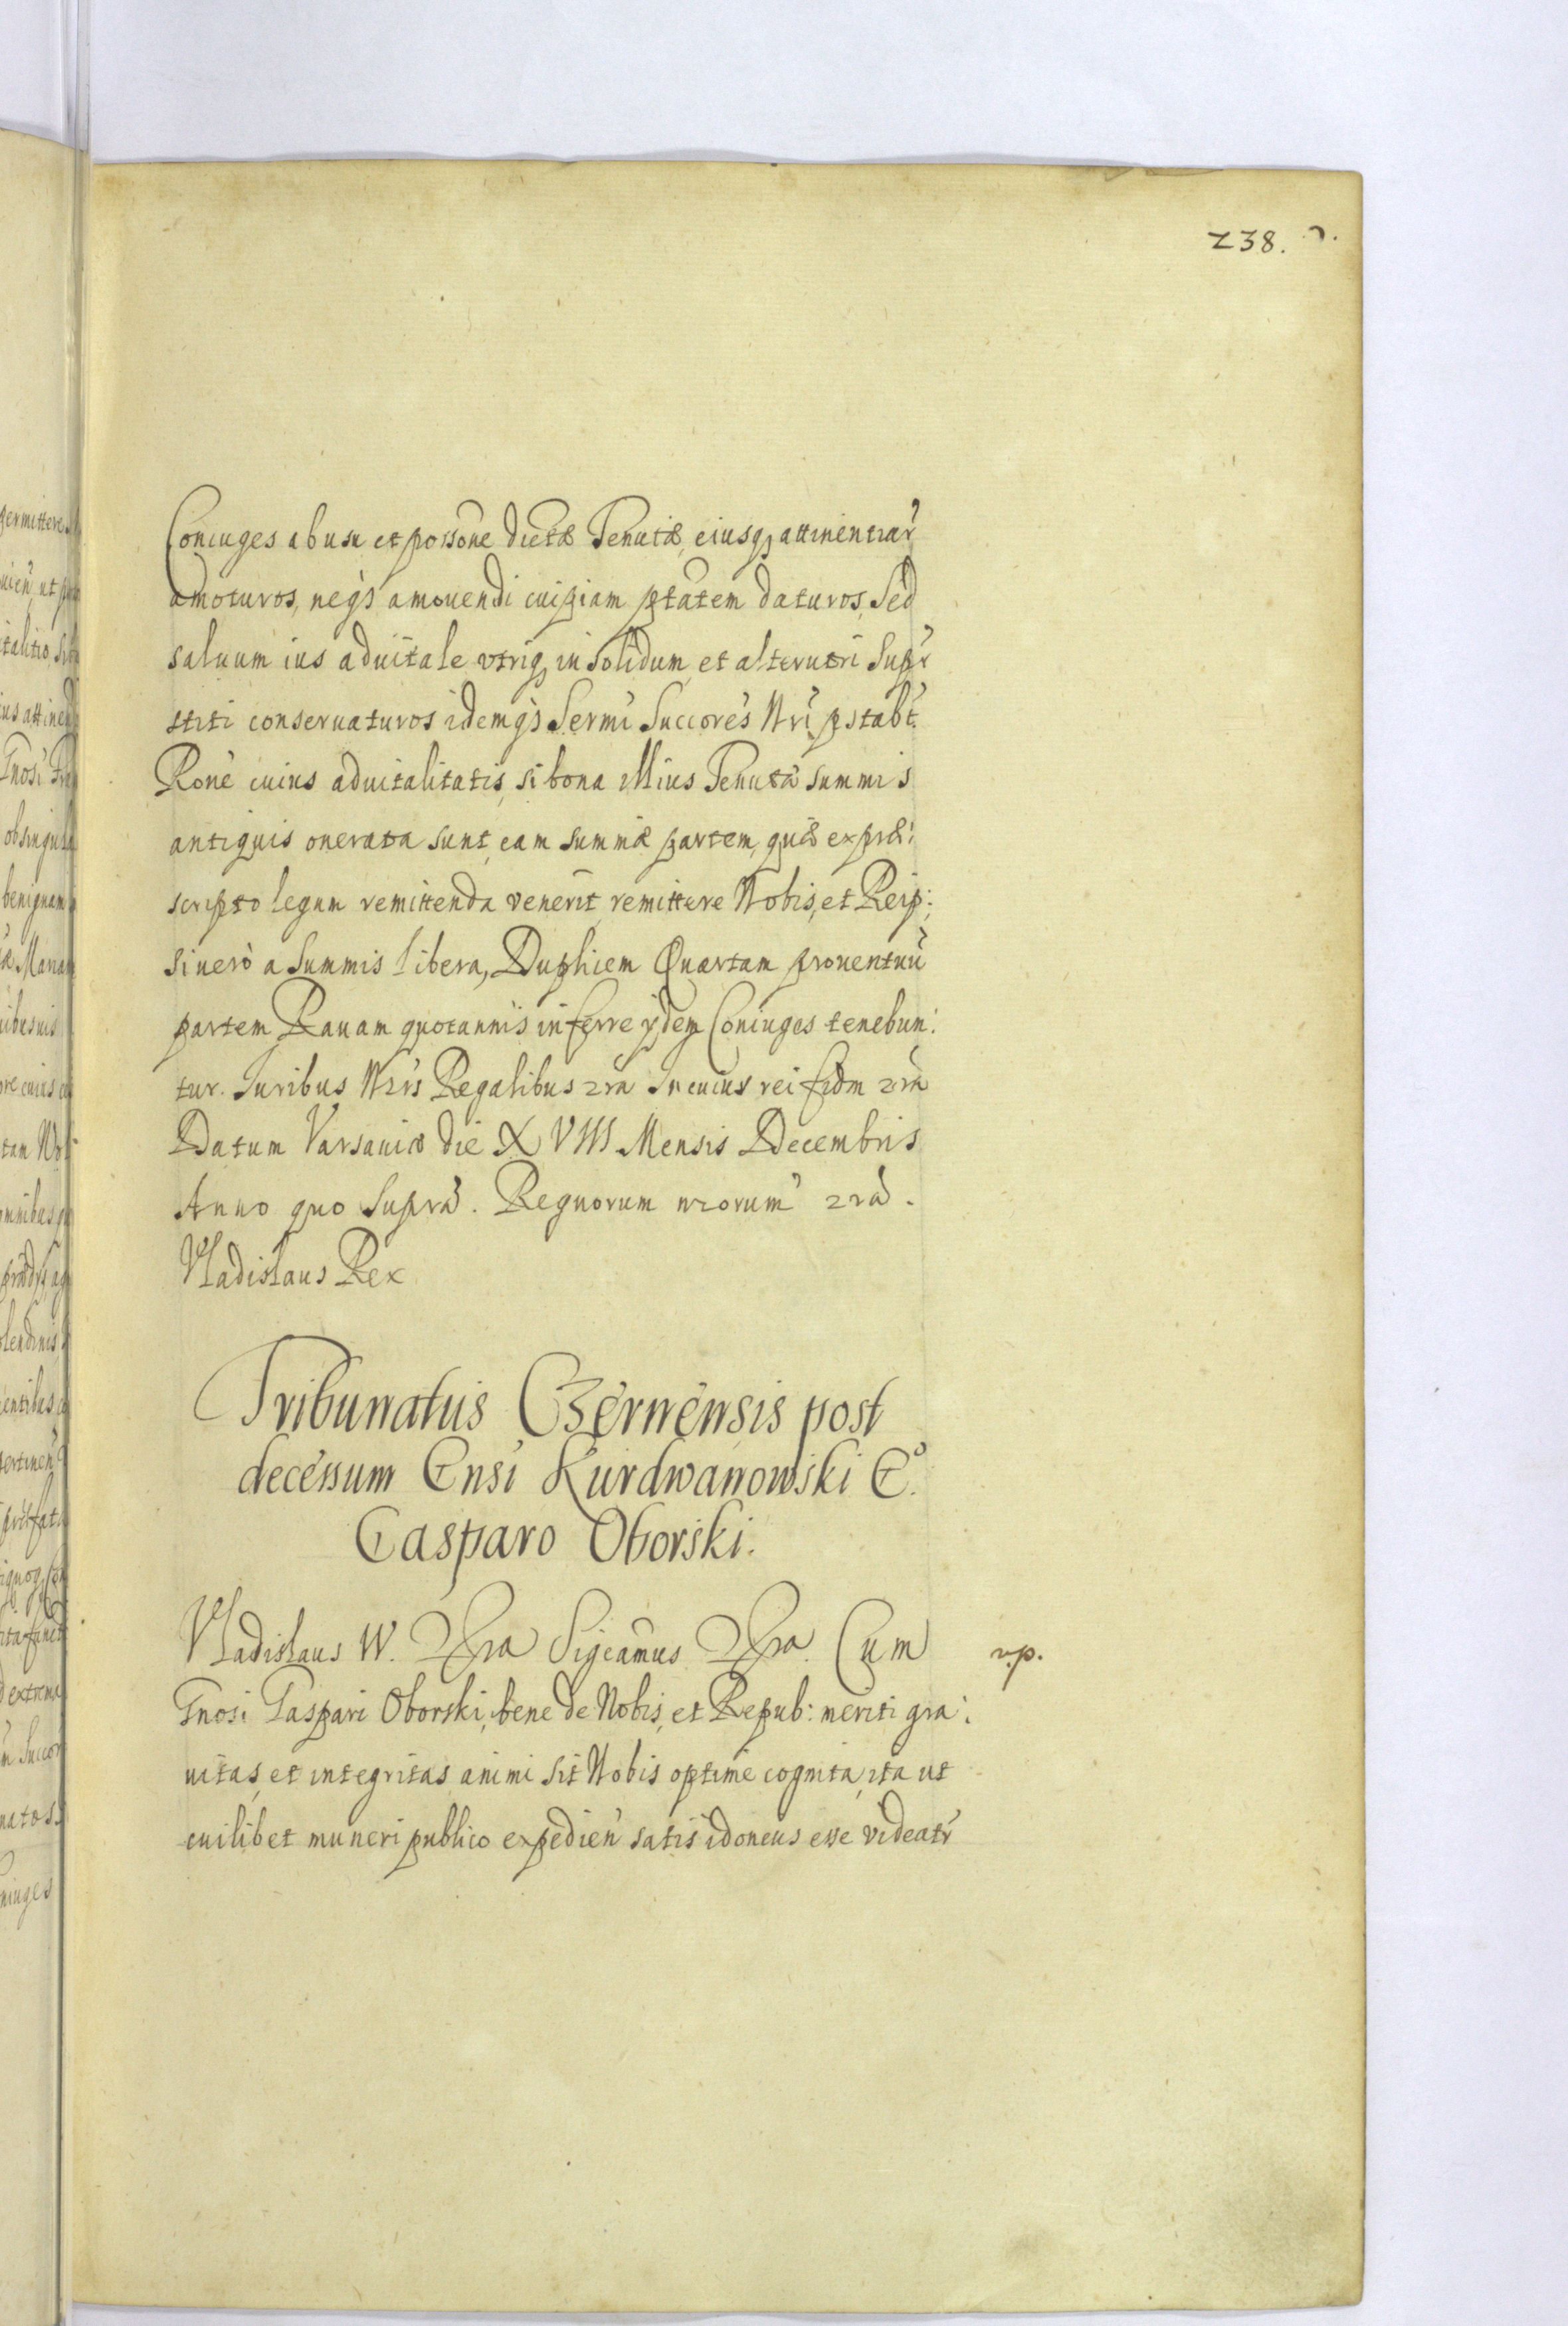 238.
Coniuges ab usu et possone dictæ Tenutæ, eiusq, attinentiar
amoturos, neqs amouendi cuipiam ptatem daturos, Sed
saluum ius aduitale vtriq, in solidum et alterutri Supr
stiti conseruaturos idemqs Sermi Succores Nri pstabt
Rone cuius aduitalitatis, si bona illius Tenuta summis
antiquis onerata sunt, eam summæ partem, quæ ex præ:
scripto legum remittenda venerit, remittere Nobis, et Reip:
si uerò a Summis libera, Duplicem Quartam prouentuũ
partem Rauam quotannis inferre ydem Coniuges tenebun:
tur. Iuribus Nris Regalibus zra In cuius rei fidm zra
Datum Varsauiæ die XVIII Mensis Decembris
Anno quo Supra. Regnorum nrorum zra.
Vladislaus Rex
Tribunatus Czernensis post
decessum Gnsi Kurdwanowski G.
Gasparo Oborski.
Vladislaus IV. Zra Sigcamus Zra. Cum
v.p.
Gnosi Gaspari Oborski, bene de Nobis, et Repub: meriti gra:
uitas, et integritas animi sit Nobis optime cognita, ita ut
cuilibet muneri publico expedien satis idoneus esse videatr